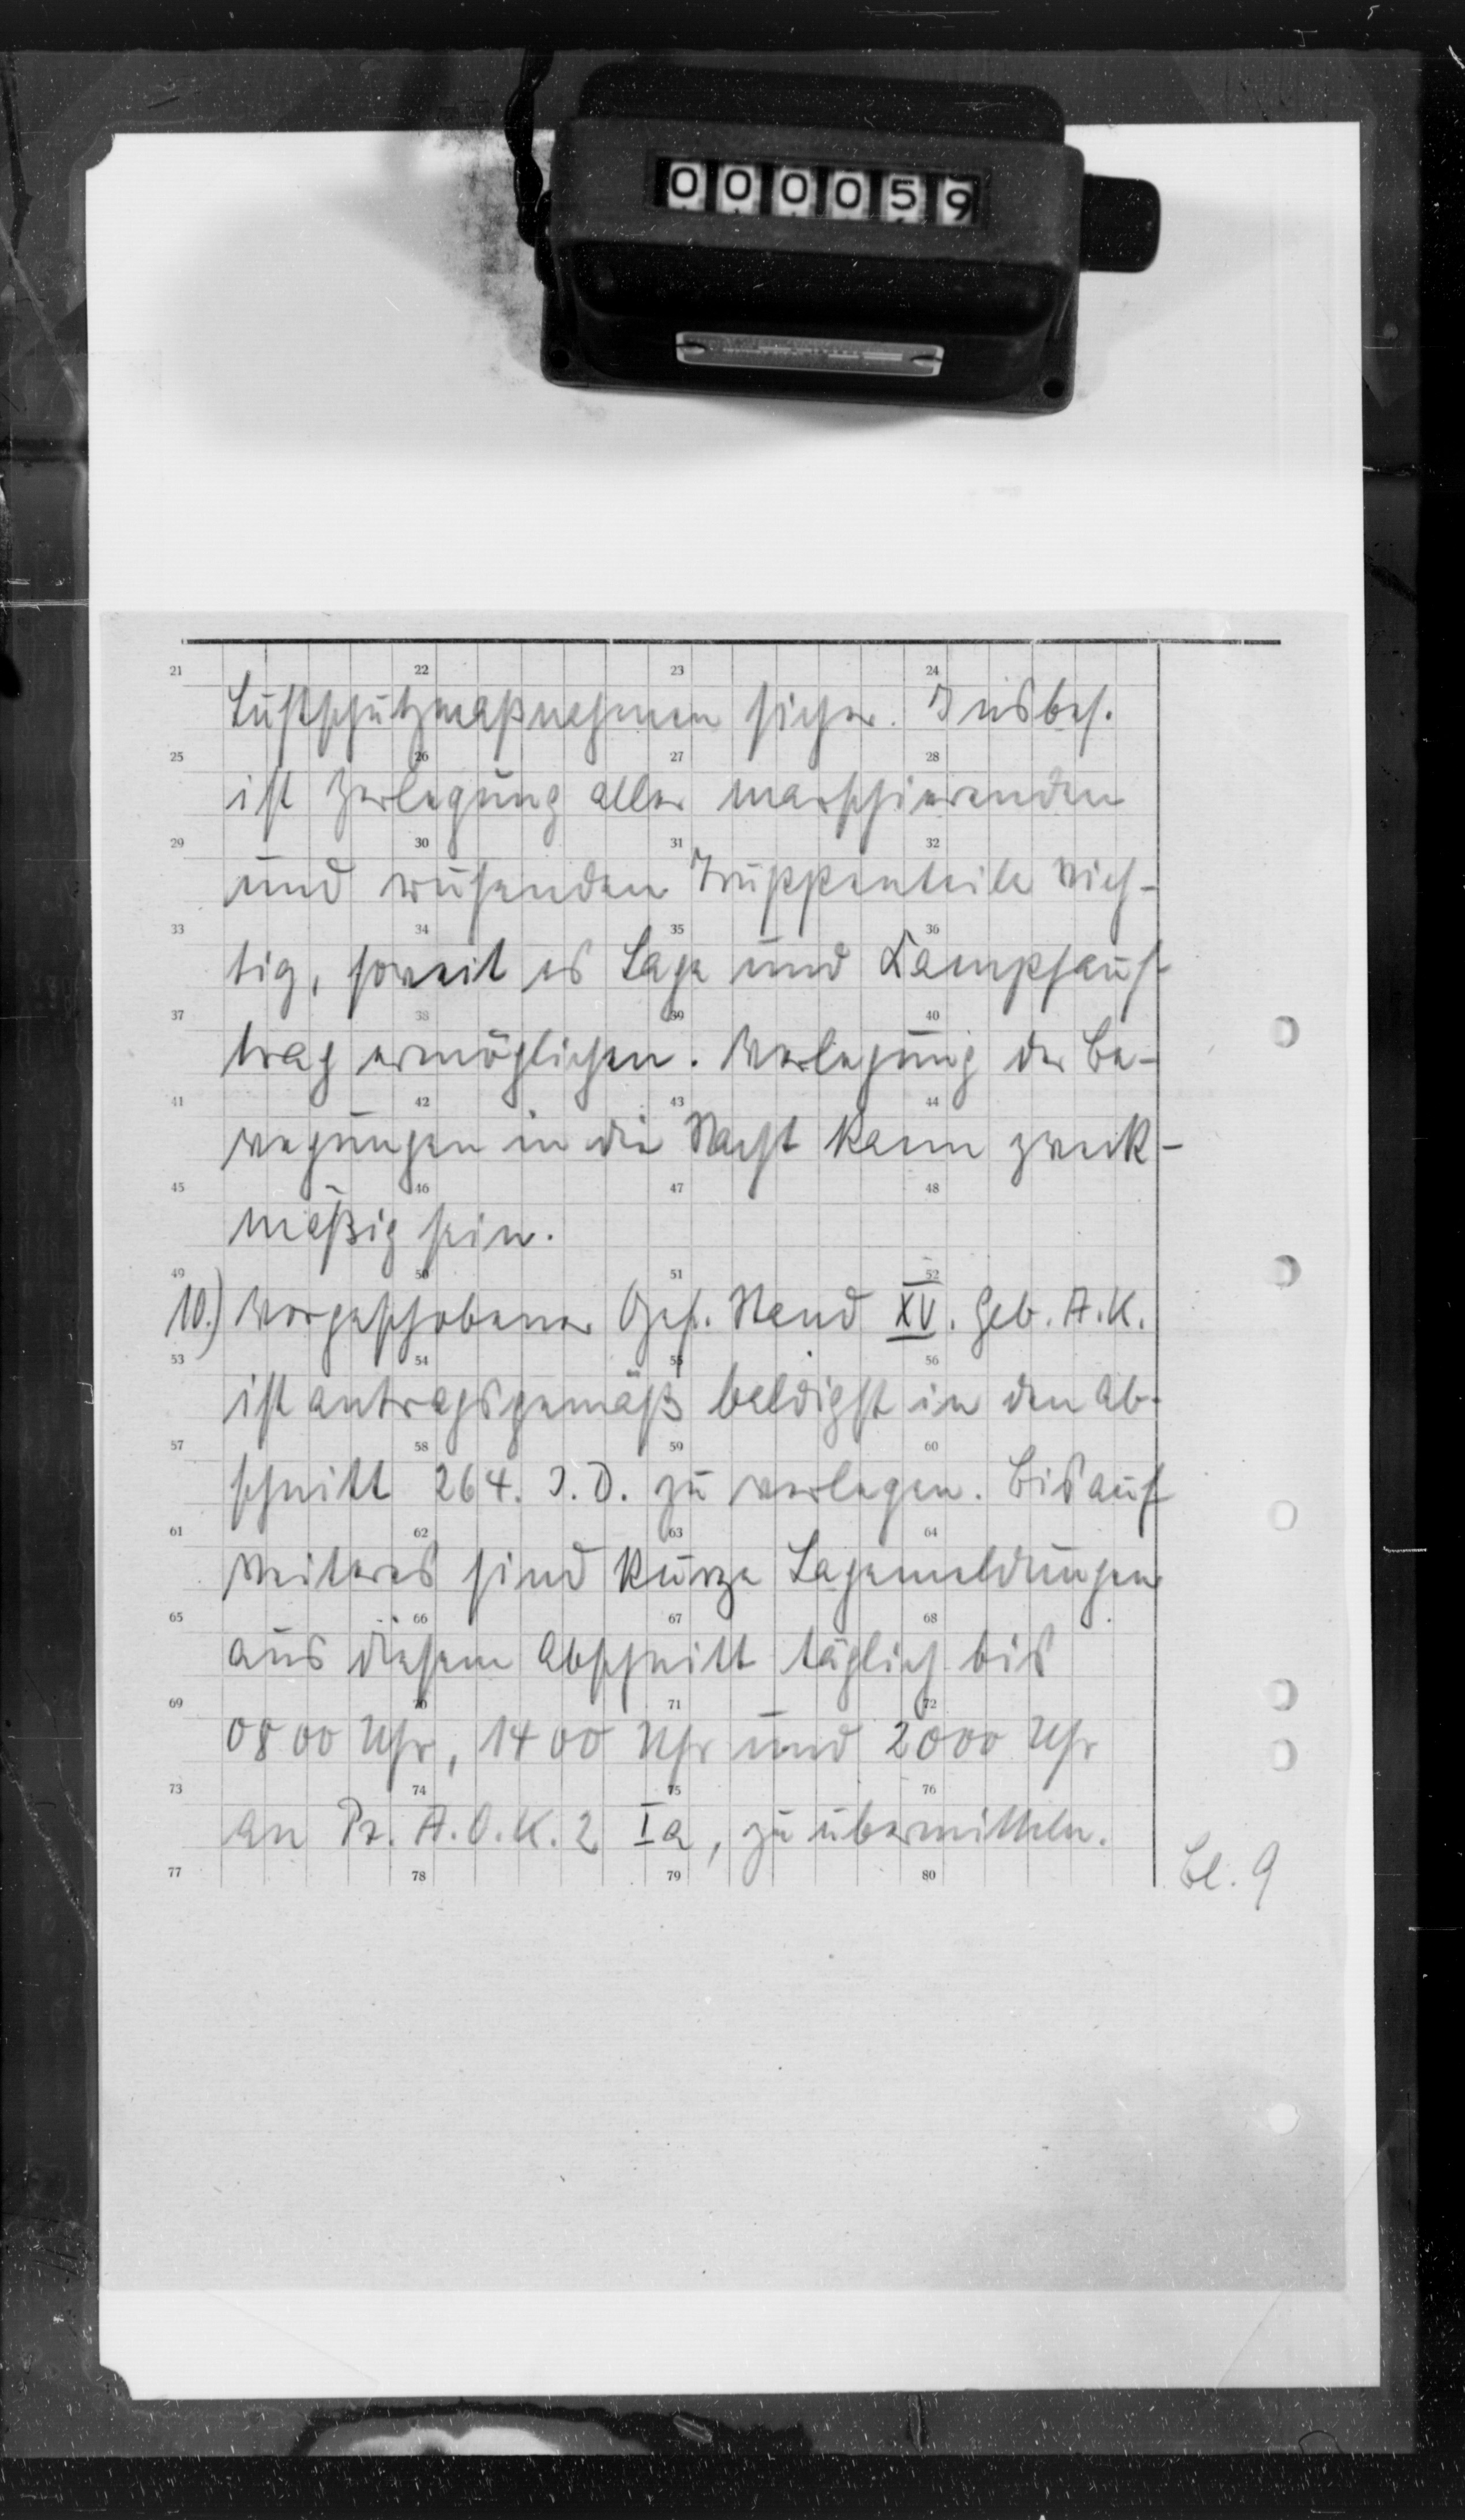 000059
21 22 23 24
Luftschutzmaßnahmen sicher. Insbes.
25 26 27 28
ist Zerlegung aller marschierenden
29 30 31 32
und ruhenden Truppenteile wich-
33 34 35 36
tig, soweit es Lage und Kampfauf-
37 38 39 40
trag ermöglichen. Verlegung der Be-
41 42 43 44
wegungen in die Nacht kann zweck-
45 46 47 48
mäßig sein.
49 50 51 52
10.) Vorgeschobener Gef. Stand XV. Geb. A.K.
53 54 55 56
ist antragsgemäß baldigst in den Ab-
57 58 59 60
schnitt 264. I.D. zu verlegen. Bis auf
61 62 63 64
weiteres sind kurze Lagemeldungen
65 66 67 68
aus diesem Abschnitt täglich bis
69 70 71 72
0800 Uhr, 1400 Uhr und 2000 Uhr
73 74 75 76
an Pz. A.O.K. 2 Ia, zu übermitteln.
77 78 79 80
Bl. 9